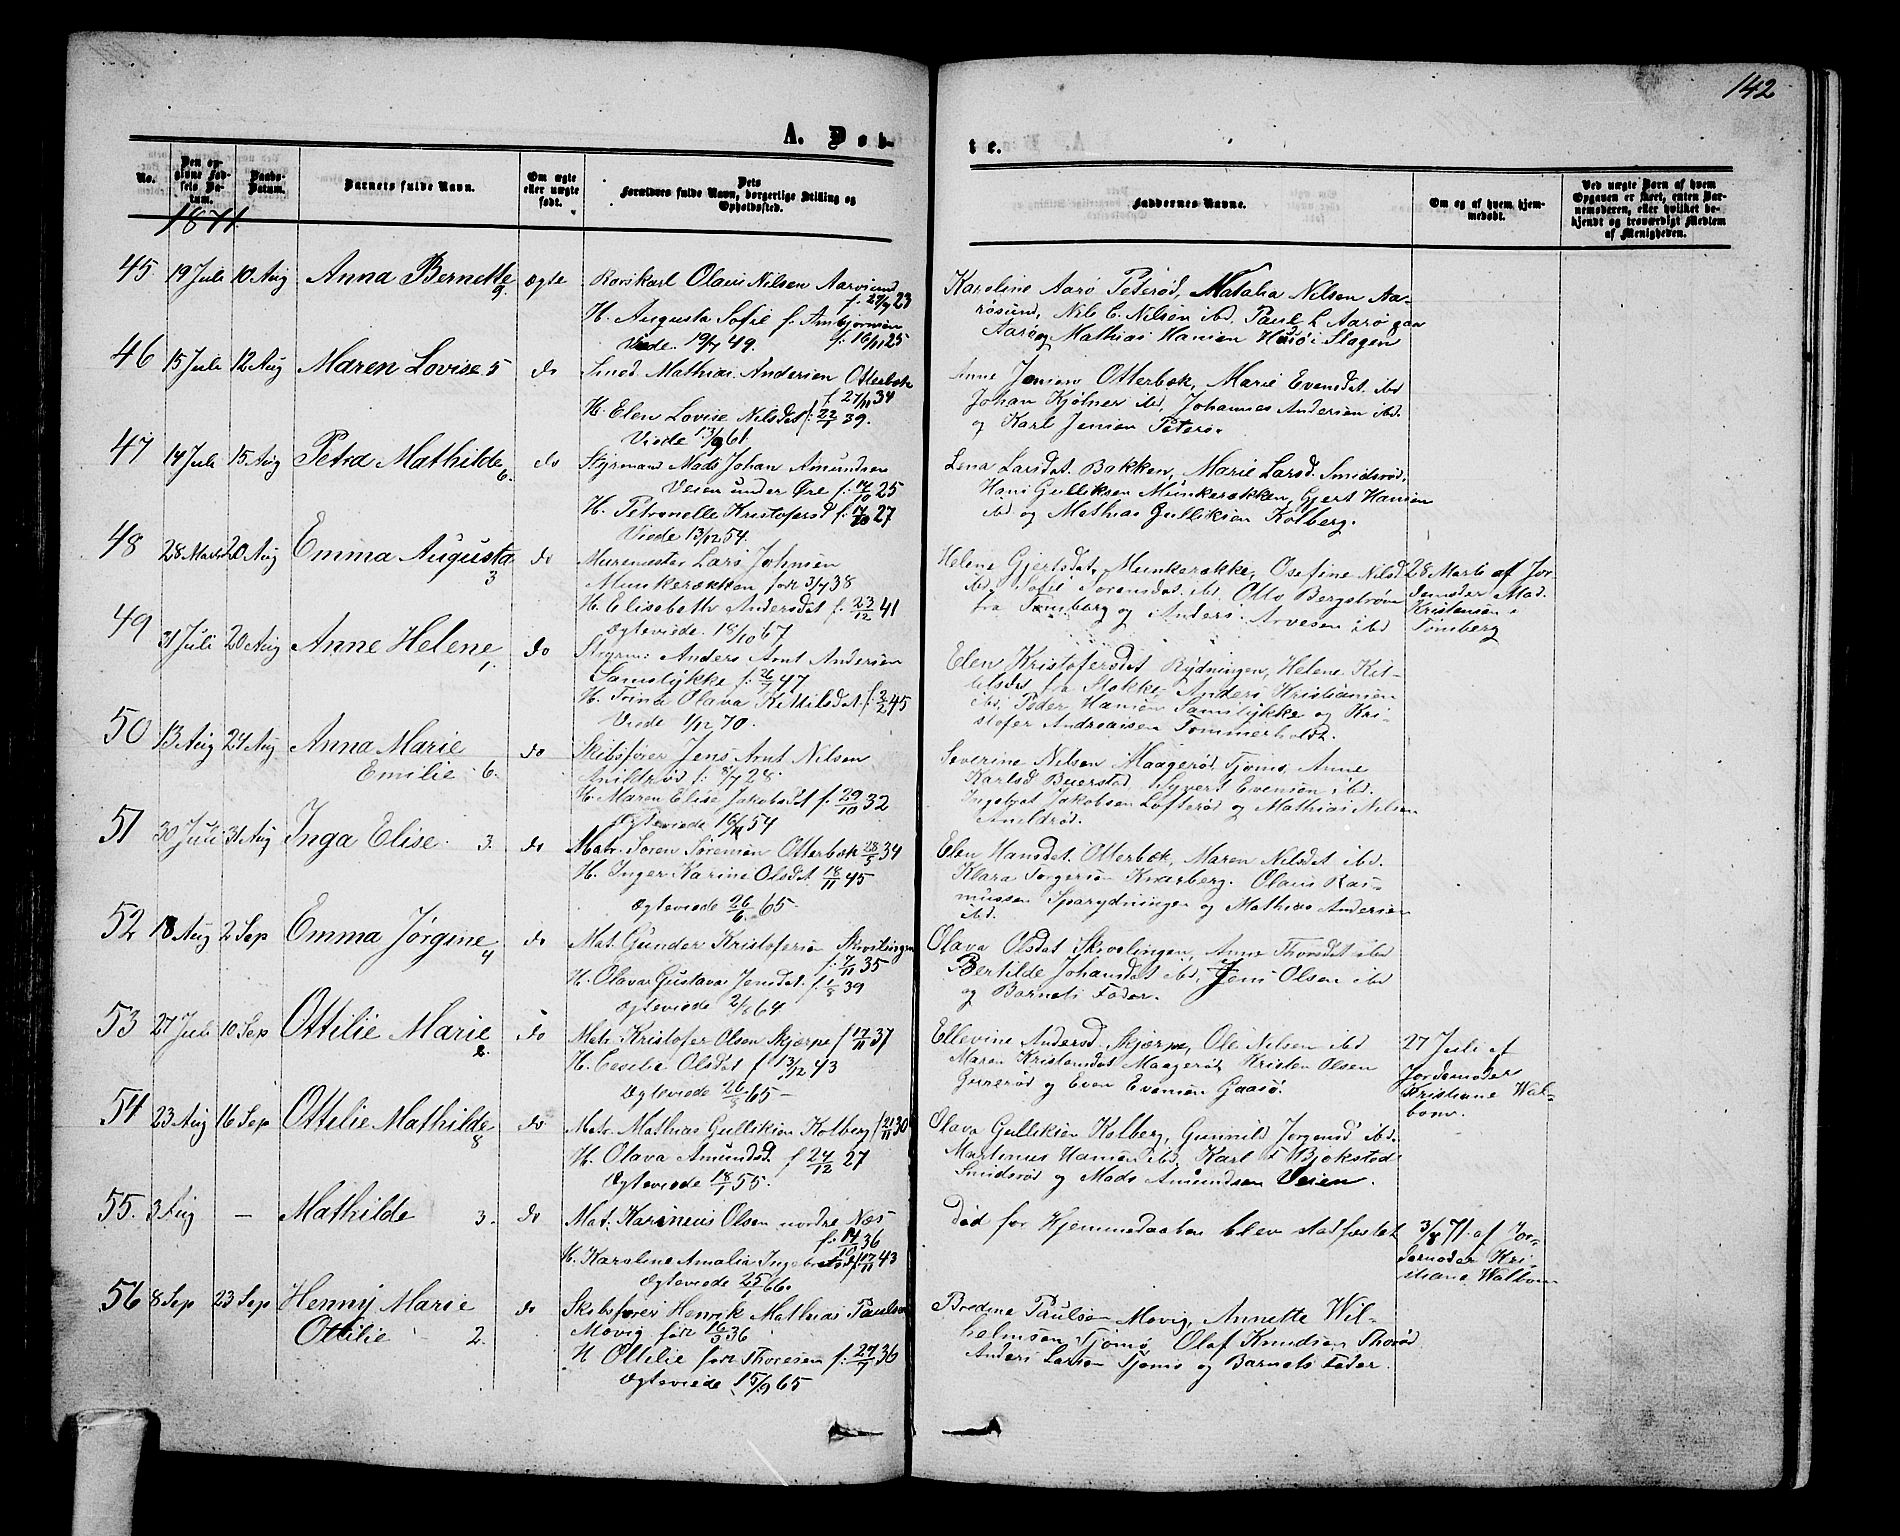 142
A. Døb-
te.
No.
Den opgivne Fødsels Datum.
Daabs-Datum.
Barnets fulde Navn.
Om ægte eller uægte født.
Dets Forældres fulde Navn, borgerlige Stilling og Opholdssted.
Faddernes Navne.
Om og af hvem hjemmedøbt.
Ved uægte Børn af hvem Opgaven er skeet, enten Barnemoderen, eller hvilket bekjendt og troværdigt Medlem af Menigheden.
1871.
45 19 Juli 10 Aug Anna Bernette 9. ægte
Rorskarl Olaus Nilsen Aarøsund
f. 27/9 23
H. Augusta Sofie f. Ambjørnsen
f. 16/11 25
Viede 19/4 49.
Karoline Aarø Peterød, Matalia Nilsen Aa-
røsund, Nils C. Nilsen ibd. Paul L Aarø paa
Aarø og Mathias Hansen Husø i Slagen
46 15 Juli 12 Aug Maren Lovise 5 do
Smed Mathias Andersen Otterbæk
f 27/11 34
H. Elen Lovise Nilsdat f. 22/1 39.
Viede 13/9 61.
Anne Jensen Otterbæk, Marie Evensdat. ibd
Johan Kjølner ibd, Johannes Andersen ibd.
og Karl Jensen Peterø.
47 14 Juli 15 Aug Petra Mathilde 6. do
Styrmand Mads Johan Amundsen
Veien under Øre f. 17/10 25
H. Petronelle Kristofersd f. 17/10 27
Viede 13/12 54.
Lena Larsdat. Bakken, Marie Larsd. Smidsrød,
Hans Gulliksen Munkerækken, Gjert Hansen
ibd og Mathias Gulliksen Kolberg.
48 28 Marts 20 Aug Emma Augusta 3 do
Muremester Lars Johnsen
Munkerækken født 3/7 38
H. Elisabeth Andersdat f. 23/12 41
Ægteviede 18/10 67
Helene Gjertsdat. Munkerække, Osefine Nilsd
ibd, Sofie Sørensdat. ibd. Otto Bergstrøm
fra Tønsberg og Anders Arvesen ibd
28 Marts af Jor-
demoder Mad.
Kristensen i
Tønsberg
49 31 Juli 20 Aug Anne Helene 1. do
Styrm: Anders Arnt Andersen
Samslykke f. 26/7 47
H. Trina Olava Kittilsdat f. 2/2 45
Viede 1/12 70.
Elen Kristofersdat Rydningen, Helene Kit-
tilsdat fra Stokke, Anders Kristiansen
ibd, Peder Hansen Samslykke og Kri-
stofer Andreassen Tommerholdt.
50 13 Aug 24 Aug Anna Marie
Emilie 6. do
Skibsfører Jens Arnt Nilsen
f. 8/7 28.
H. Maren Elise Jakobsdat f. 29/10 32
Ægteviede 16/11 54
Severine Nilsen Maagerø, Tjømø, Anne
Karlsd Buerstad, Syvert Evensen ibd.
Ingebret Jakobsen Lofterød og Mathias Nilsen
51 30 Juli 31 Aug Inga Elise 3. do
Matr. Søren Sørensen Otterbæk 28/5 34
H. Inger Karine Olsdat 18/11 45
Ægteviede 26/6 65.
Elen Hansdat. Otterbæk, Maren Nilsdat ibd.
Klara Torgersen Knarberg. Olaus Ras-
mussen Sparydningen og Mathias Andersen
ibd.
52 18 Aug 2 Sep Emma Jørgine 4 do
Mat. Gunder Kristofersen Skivelingen
f. 7/11 35
H. Olava Gustava Jensdat. f. 1/8 39
Ægteviede 2/1 64
Olava Olsdat Skivelingen, Anne Thorsdat ibd
Bertilde Johansdat ibd, Jens Olsen ibd
og Barnets Fader.
53 27 Juli 10 Sep Ottilie Marie 2. do
Mat. Kristofer Olsen Skjærpe f 17/11 37
H. Cesilia Olsdat f. 13/12 43
Ægteviede 26/5 65 –
Ellevine Andersd. Skjærpe, Ole Nilsen ibd
Maren Kristensdat Maagerø, Kristen Olsen
Gurrerød og Even Evensen Gaasø.
27 Juli af
Jordemoder
Kristiane Wal-
bom.
54 23 Aug 16 Sep Ottilie Mathilde 8 do
Mat. Mathias Gulliksen Kolberg f 21/11 30
H. Olava Amundsd. f 24/12 27
Ægteviede 18/1 55.
Olava Gulliksen Kolberg, Gunnild Jørgensd ibd.
Martinus Hansen ibd, Karl T Bjekstad
Smidsrød og Mads Amundsen Veien.
55. 3 Aug – Mathilde 3. do
Mat. Karineus Olsen nordre Næs
f. 14/10 36
H. Karoline Amalia Ingebretsd f 17/11 43
Ægteviede 25/1 66.
Død før Hjemmedaaben blev stadfæstet
3/8 71. af Jor-
demoder Kri-
stiane Walbom
56 8 Sep 23 Sep Henny Marie
Ottilie 2. do
Skibsfører Henrik Mathias Paulsen
Movig født 16/3 36
H Ottilie født Thoresen f. 27/7 36
Ægteviede 15/9 65
Bredine Paulsen Movig, Annette Wil-
helmsen Tjømø, Olaf Knudsen Thorød
Anders Larsen Tjømø og Barnets Fader.